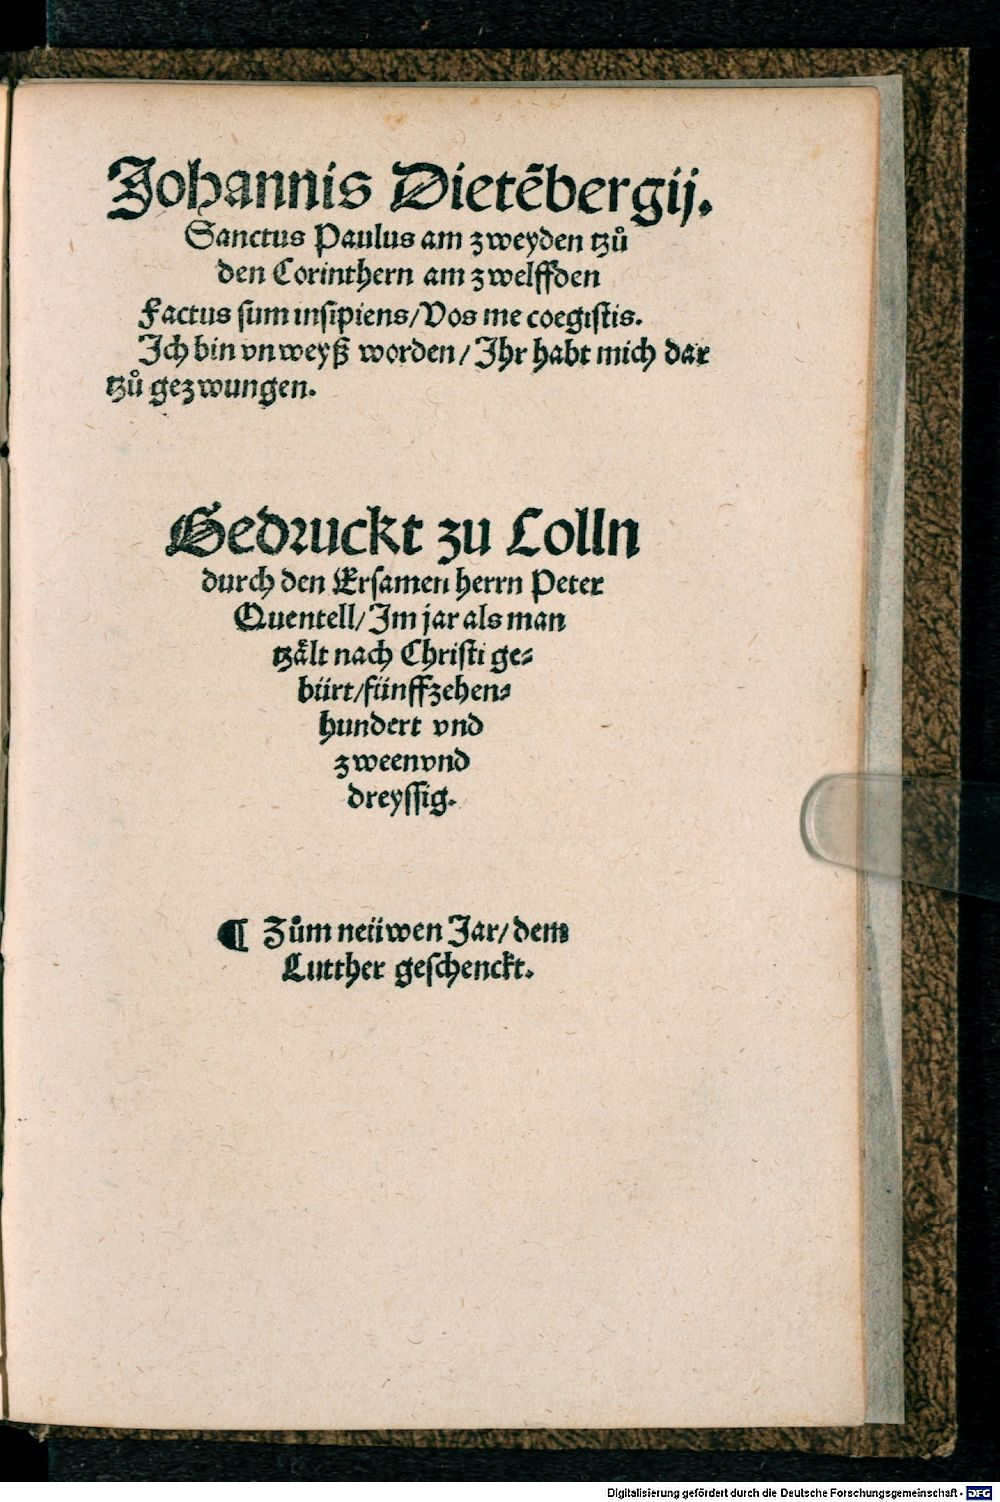 Johannis Dietēbergij.
Sanctus Paulus am zweyden tzů
den Corinthern am zwelffden
Factus sum insipiens/Vos me coegistis.
Ich bin vnweyß worden/Ihr habt mich dar
tzů gezwungen.
Gedruckt zu Colln
durch den Ersamen herrn Peter
Quentell/Im jar als man
tzålt nach Christi ge⸗
bürt/fünffzehen⸗
hundert vnd
zweenvnd
dreyssig.
¶ Zům neüwen Jar/dem
Lutther geschenckt.
Digitalisierung gefördert durch die Deutsche Forschungsgemeinschaft - DFG